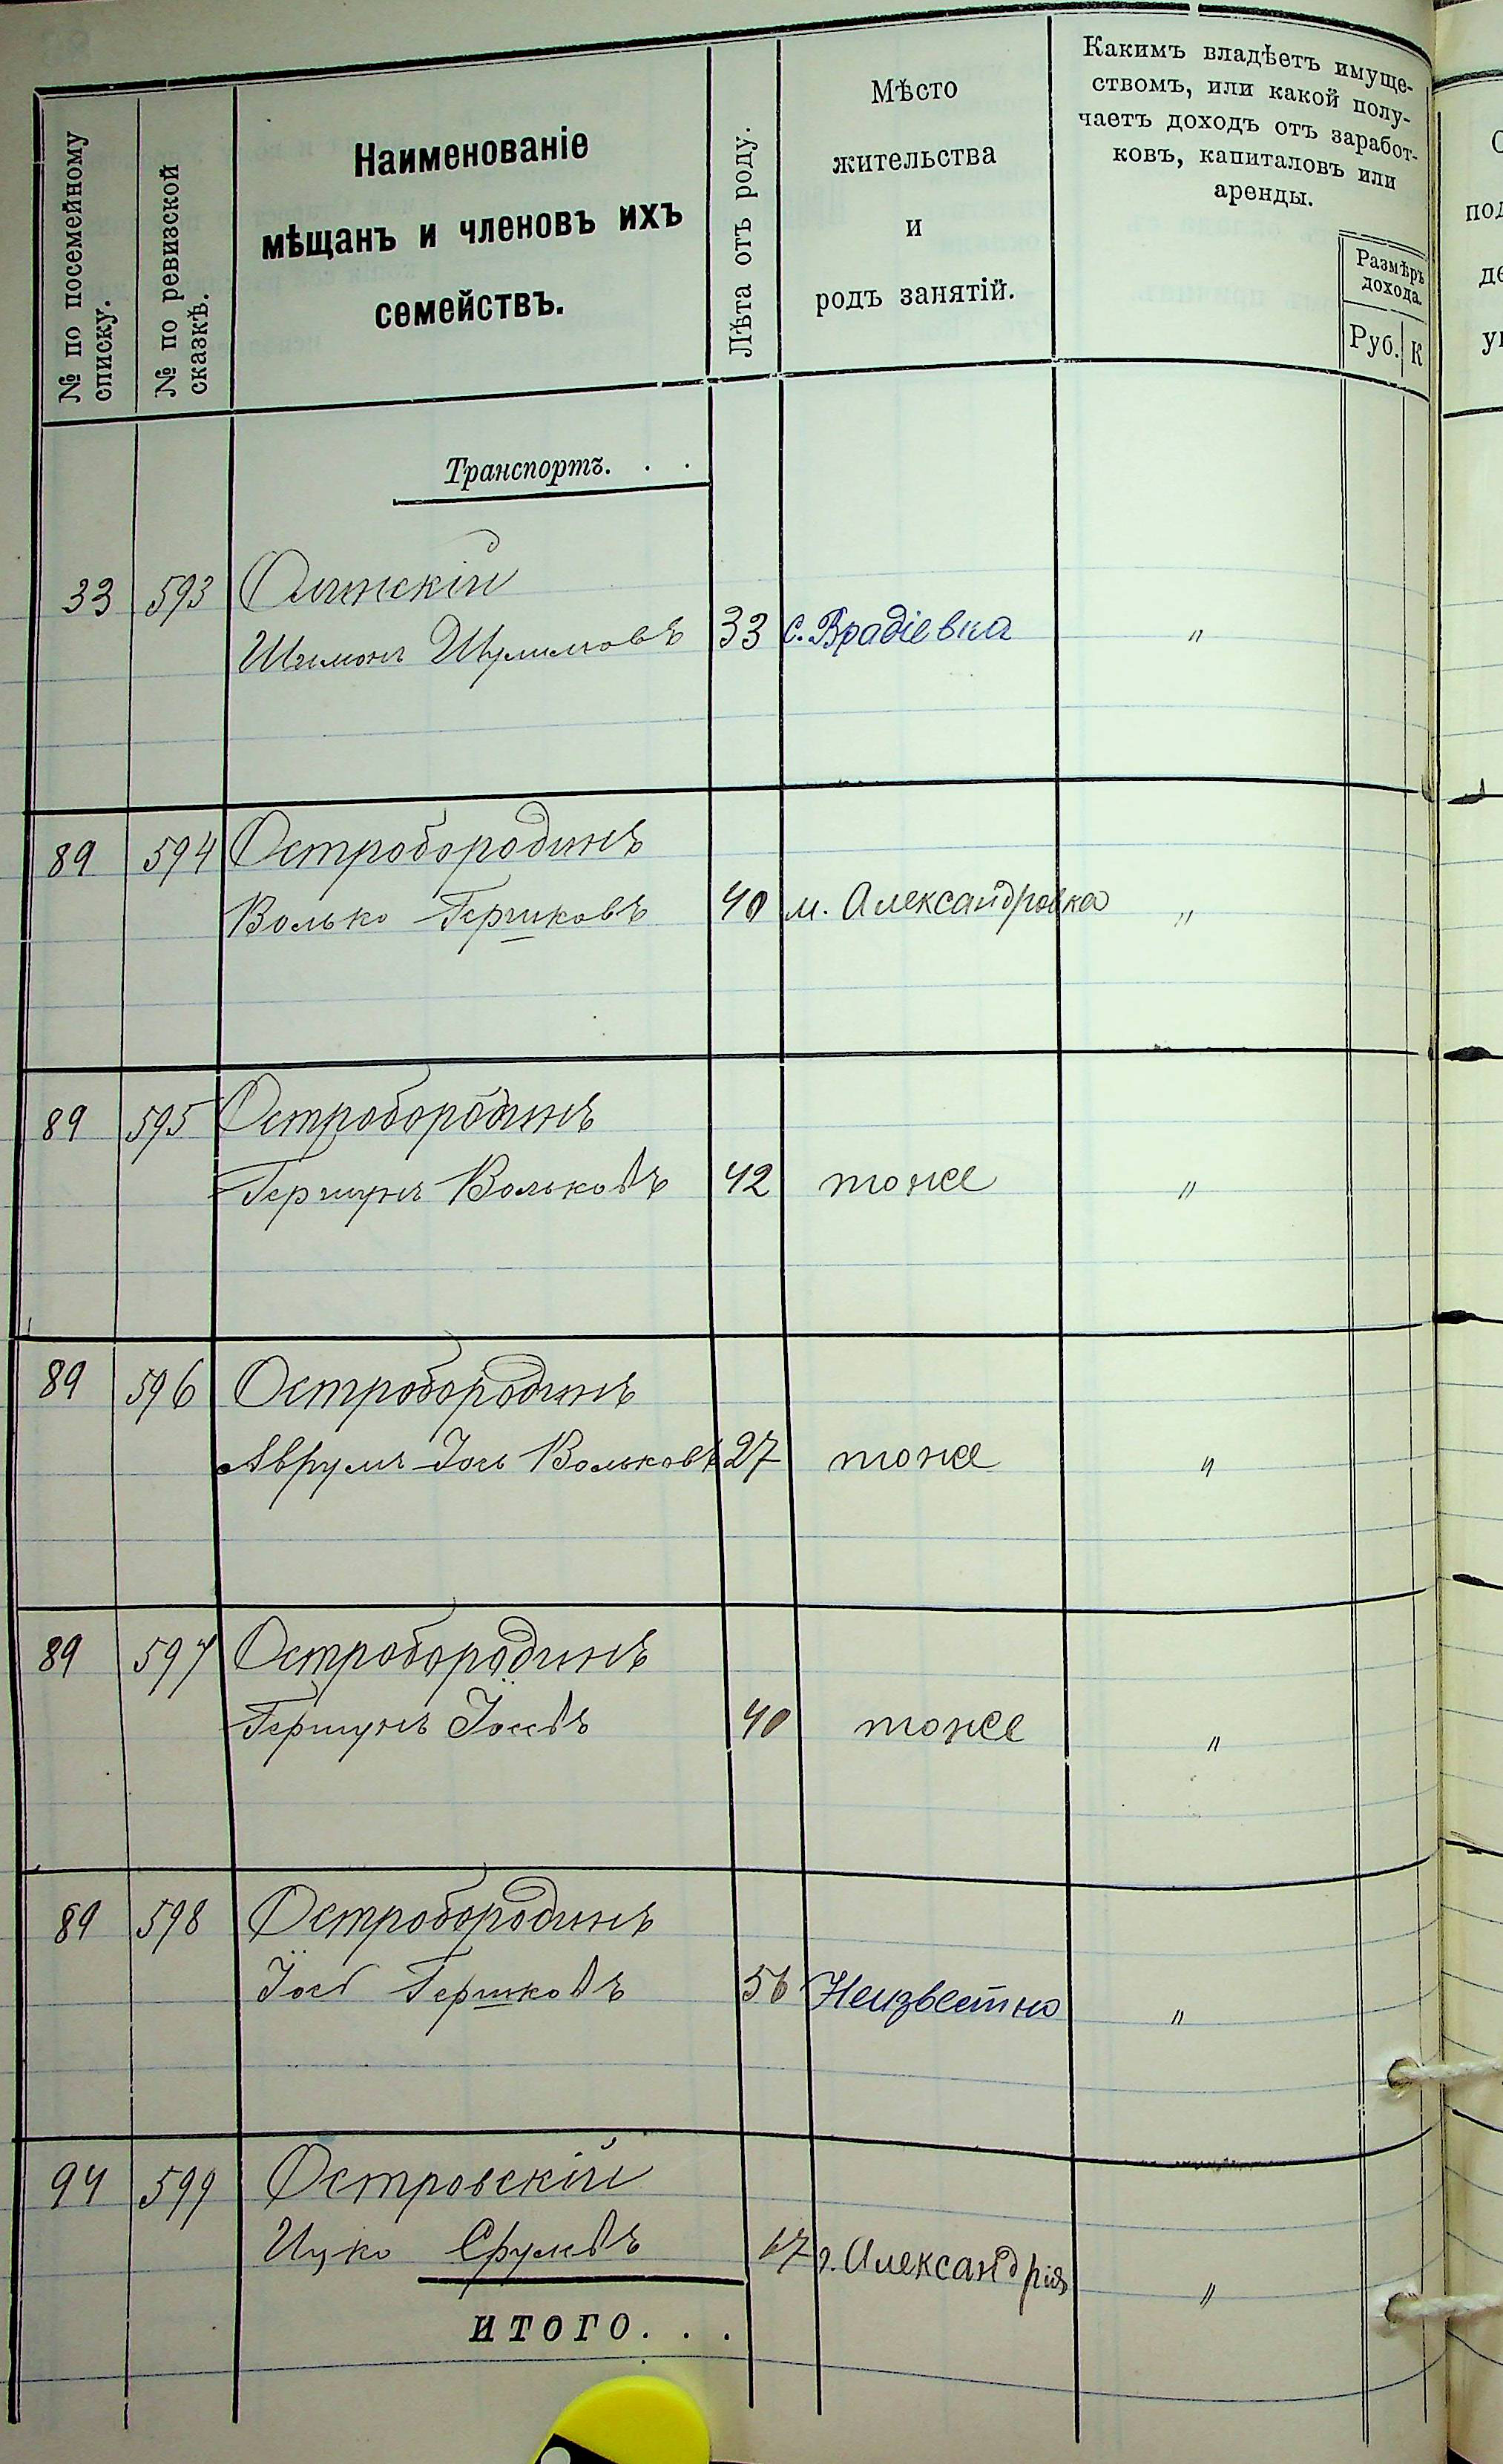 № по посемейному списку.
№ по ревизской сказкѣ.
Наименованіе
мѣщанъ и членовъ ихъ
семействъ.
Лѣта отъ роду.
Мѣсто
жительства
и
родъ занятій.
Какимъ владѣетъ имуще-
ствомъ, или какой полу-
чаетъ доходъ отъ заработ-
ковъ, капиталовъ или
аренды.
Размѣръ
дохода.
Руб. К
Транспортъ. . .
33 593
33 с. Врадіевка "
89 594 Остробородинъ
Волько Гершковъ 40 м. Александровка "
89 595 Остробородинъ
Гершунъ Вольковъ 42 тоже "
89 596 Остробородинъ
Аврумъ Іось Вольковъ 27 тоже "
89 597 Остробородинъ
Гершунъ Іосевъ 40 тоже "
89 598 Остробородинъ
Іось Гершковъ 56 Неизвестно "
94 599 Островскій
Ицко Срулевъ 67 г. Александрія "
ИТОГО. . .